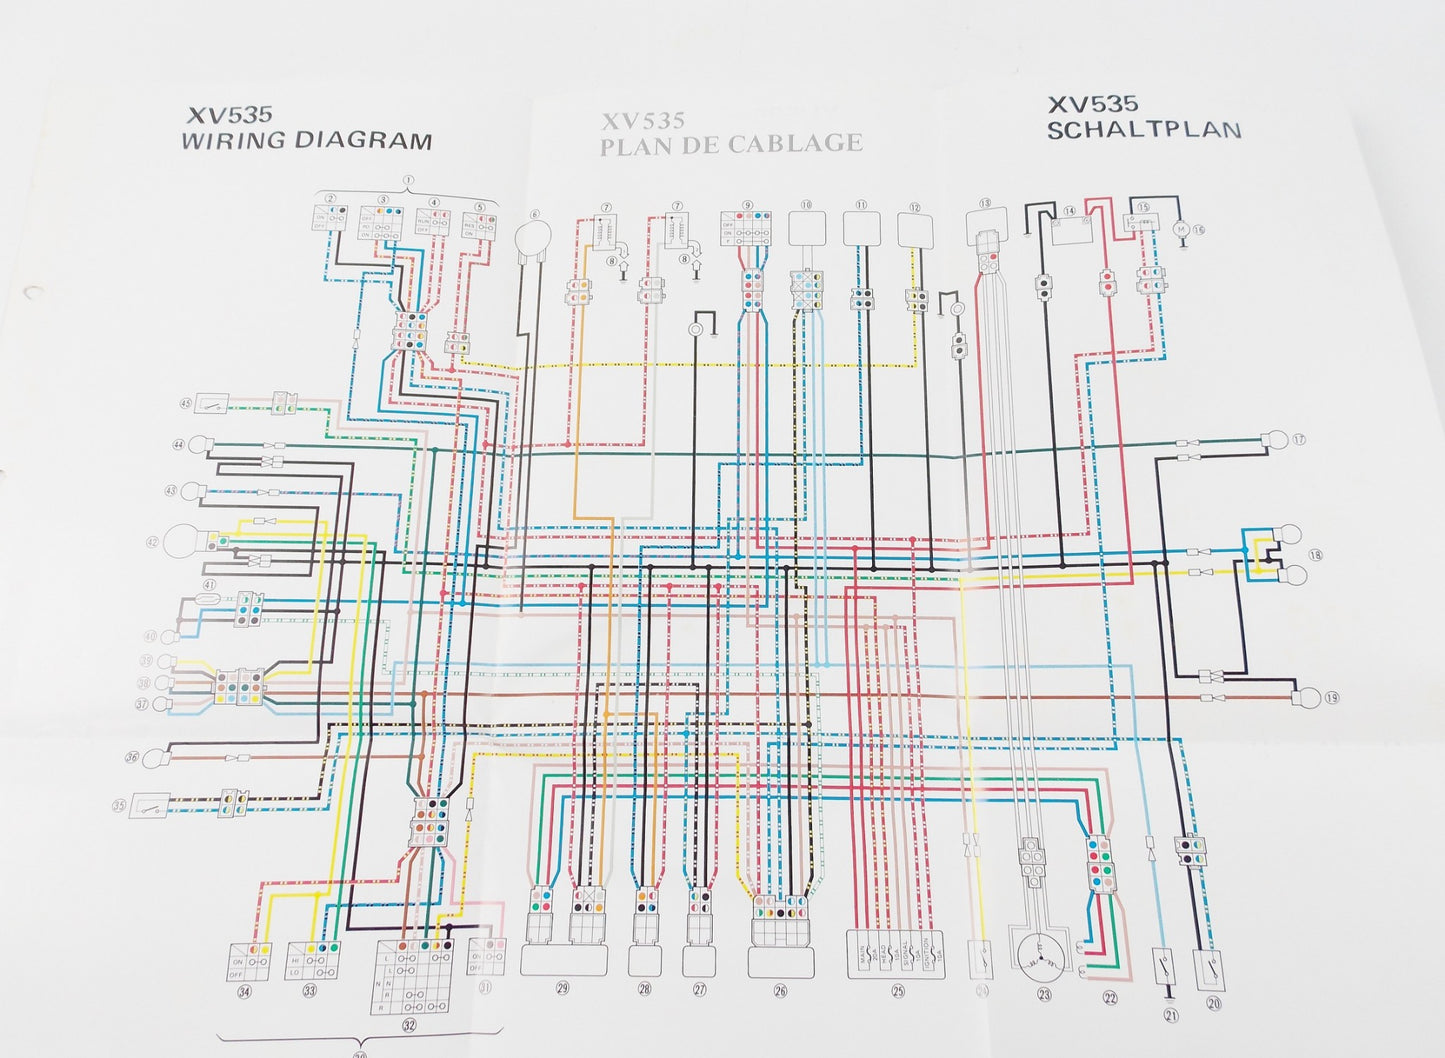 XV535
WIRING DIAGRAM
XV535
PLAN DE CABLAGE
XV535
SCHALTPLAN
①
② ③ ④ ⑤ ⑥ ⑦ ⑦ ⑨ ⑩ ⑪ ⑫ ⑬ ⑭ ⑮ ⑯
⑧ ⑧
ON
OFF
OFF
PO
ON
RUN
OFF
RES
ON
OFF
ON
P
M
㊺
㊹ ⑰
㊸
㊷ ⑱
㊶
㊵
㊴
㊳
㊲ ⑲
㊱
㉟
ON
OFF
HI
LO
L
L
N
N
R
R
ON
OFF
MAIN 20A
HEAD 10A
SIGNAL 15A
IGNITION 10A
㉞ ㉝ ㉜ ㉛ ㉙ ㉘ ㉗ ㉖ ㉕ ㉔ ㉓ ㉒ ㉑ ⑳